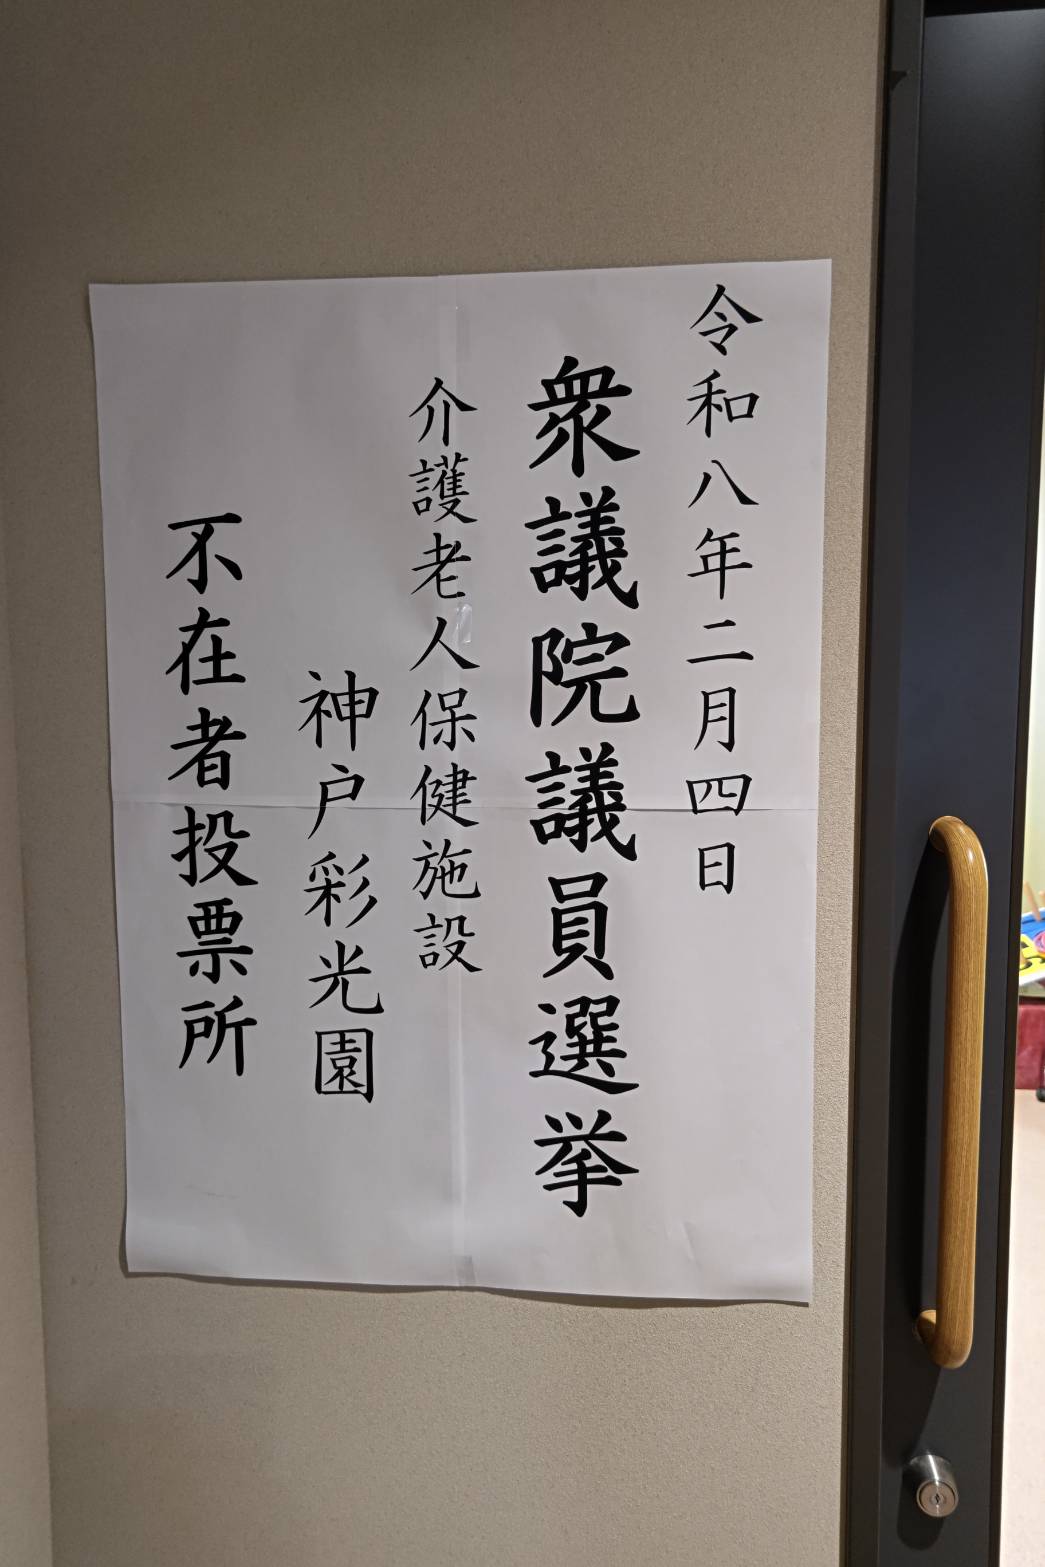 令和八年二月四日
衆議院議員選挙
介護老人保健施設
神戸彩光園
不在者投票所